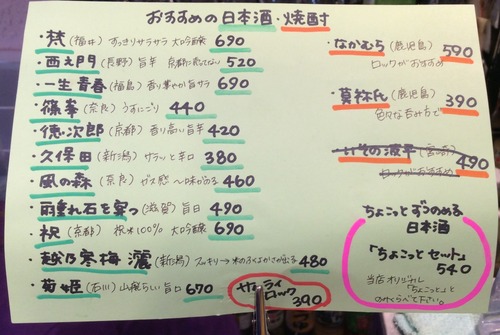 おすすめの日本酒・焼酎
・梵(福井) すっきりサラサラ 大吟醸 690
・西之門(長野) 旨辛 520
・一生青春(福島) 香り華やか旨サラ 690
・篠峯(奈良) うすにごり 440
・徳次郎(京都) 香り高い旨辛 420
・久保田(新潟) サラッと辛口 380
・風の森(奈良) ガス感〜味がある 460
・雨垂れ石を穿つ(滋賀) 旨口 490
・祝(京都) 祝米100% 大吟醸 690
・越乃寒梅 灑(新潟) スッキリ→米のふくよかさが広がる 480
・菊姫(石川) 山廃らしい旨口 670
サムライ
ロック
390
・なかむら(鹿児島) 590
ロックがおすすめ
・莫祢氏(鹿児島) 390
色々な呑み方で
・いその波平 490
ロックがおすすめ
ちょこっとずつのめる
日本酒
「ちょこっとセット」
540
当店オリジナル
「ちょこっと」と
のみくらべて下さい。